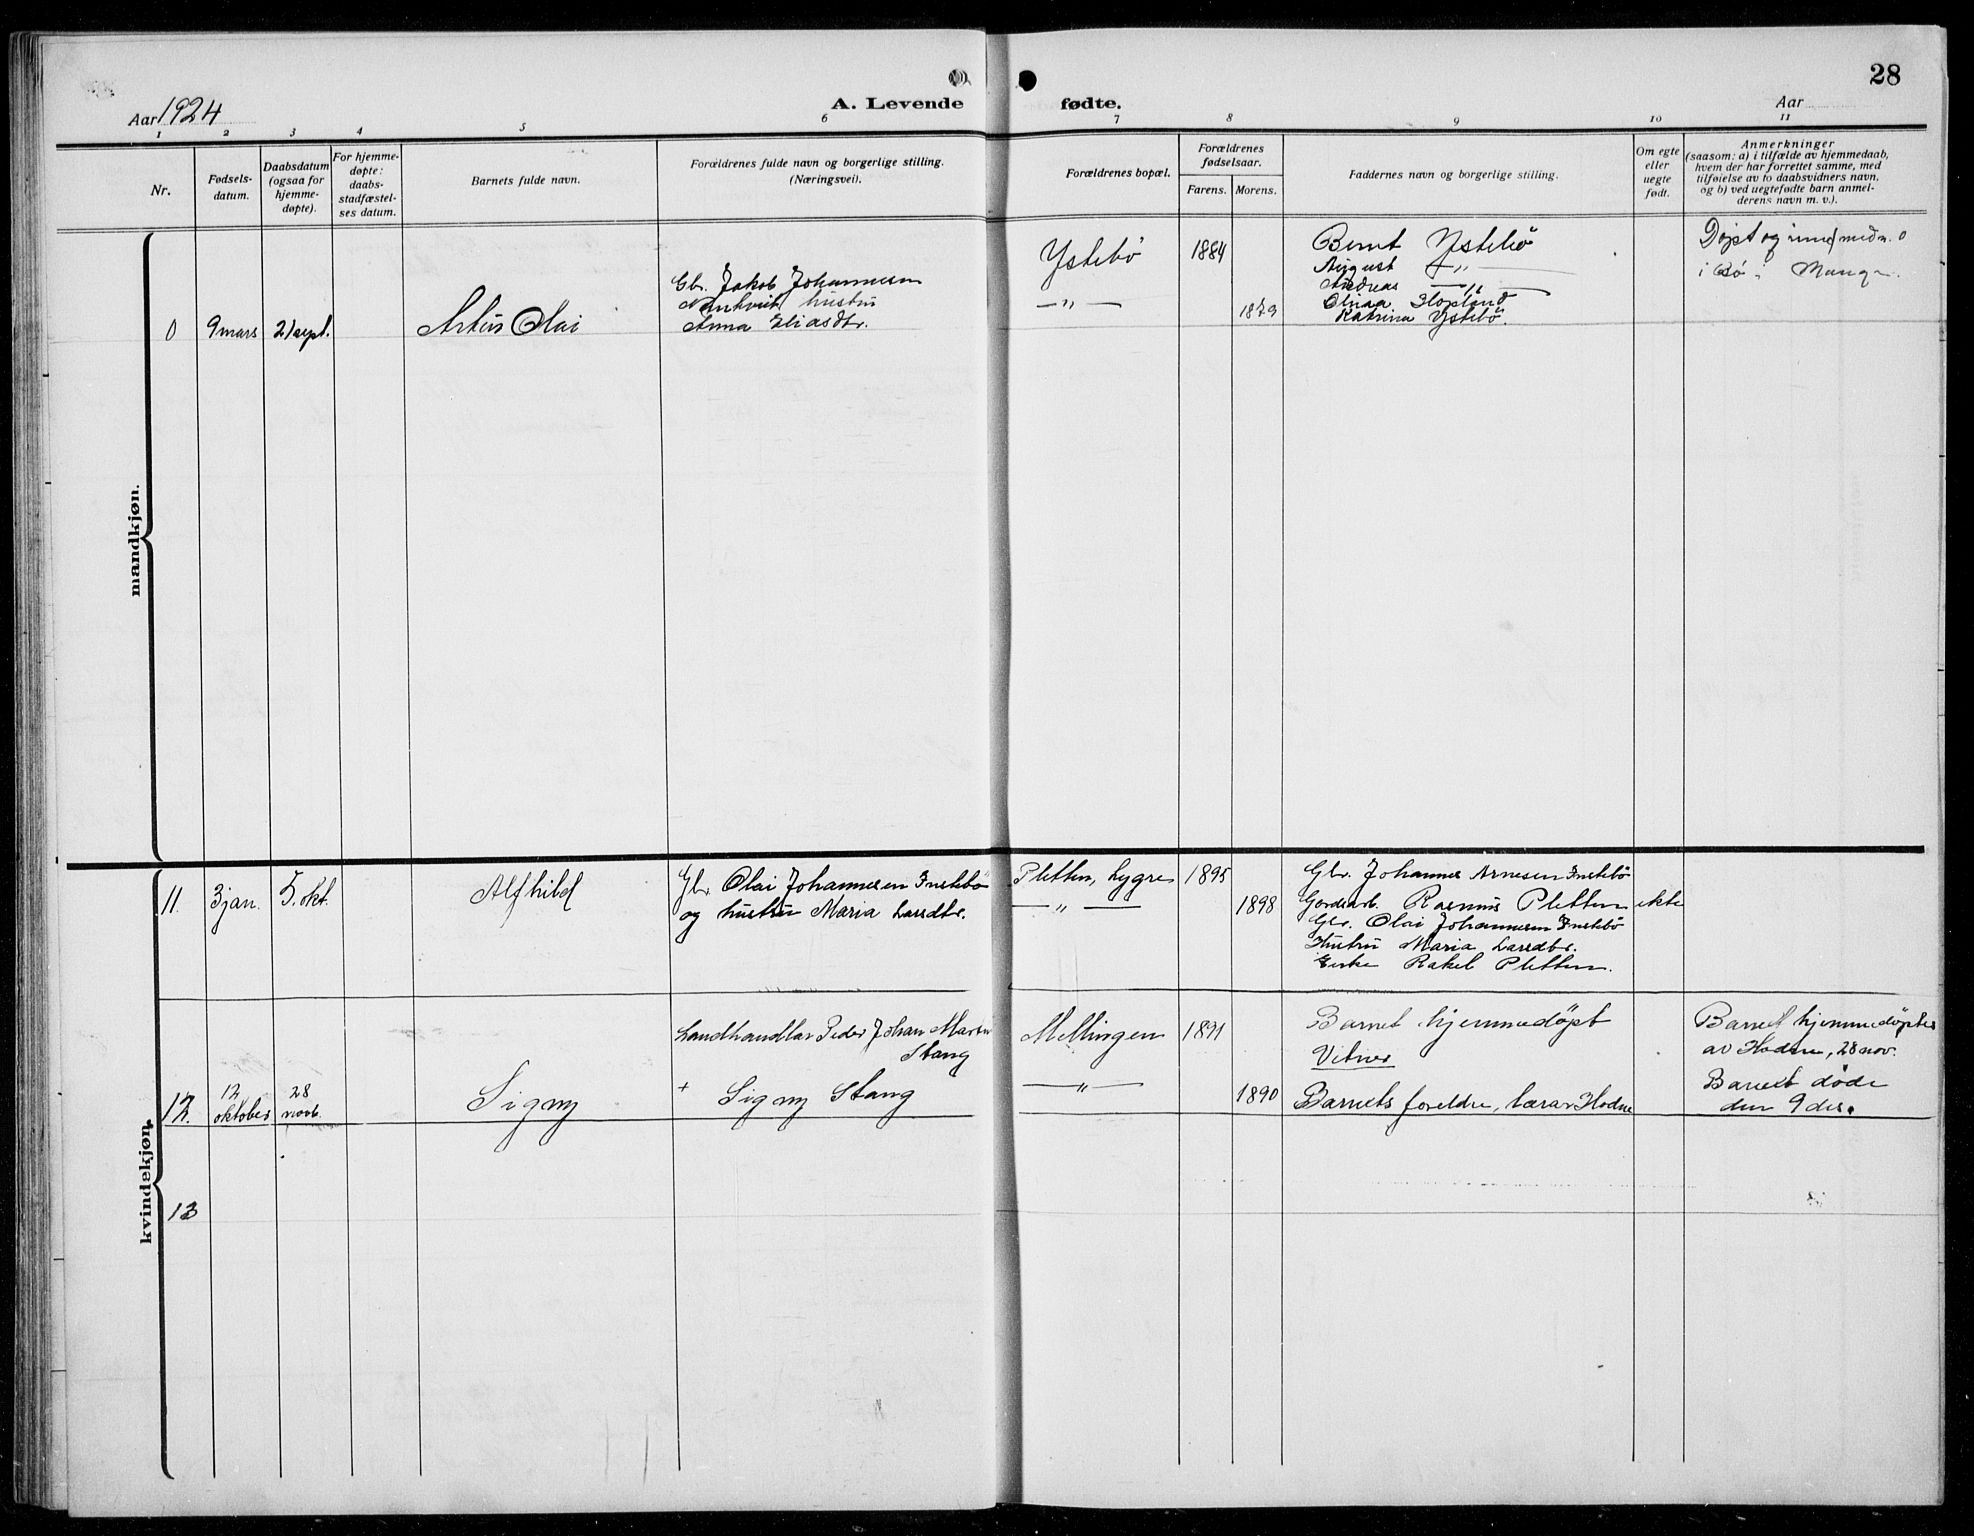 28
Aar 1924
A. Levende
fødte.
Aar
1 2 3 4 5 6 7 8 9 10 11
Nr.
Fødsels-
datum.
Daabsdatum
(ogsaa for
hjemme-
døpte).
For hjemme-
døpte:
daabs-
stadfæstel-
ses datum.
Barnets fulde navn.
Forældrenes fulde navn og borgerlige stilling.
(Næringsvei).
Forældrenes bopæl.
Forældrenes
fødselsaar.
Farens. Morens.
Faddernes navn og borgerlige stilling.
Om egte
eller
uegte
født.
Anmerkninger
(saasom: a) i tilfælde av hjemmedaab,
hvem der har forrettet samme, med
tilføielse av to daabsvidners navn,
og b) ved uegtefødte barn anmel-
derens navn m. v.).
mandkjøn.
0
9 mars
21 sept.
Olai
Gbr. Jakob Johannesen
hustru
Anna Eliasdtr.
Ystebö
— „ —
1884
1879
Bernt Ystebö
August — „ —
Andreas — „ —
Olinaa Hopland
Katrina Ystebö.
Döpt og
i Bö i
kvindekjøn.
11
3 jan.
5. okt.
Alfhild
Gbr. Olai Johannesen Instebö
og hustru Maria Larsdtr.
Pletten, Lygre
— „ —
1895
1898
Gbr. Johannes Arnesen Instebö
Gardsarb. Rasmus Pletten
Gbr. Olai Johannesen Instebö
Hustru Maria Larsdtr.
Enke Rakel Pletten.
ekte
12.
12
oktober
28
novb.
Signy
Landhandlar Peder Johan Martin
Stang
+ Signy Stang
Mellingen
— „ —
1891
1890
Barnet hjemmedöpt
Vitner
Barnets foreldre, lærar Hodne
Barnet hjemmedöptes
av Hodne, 28 nov.
Barnet döde
den 9 des.
13